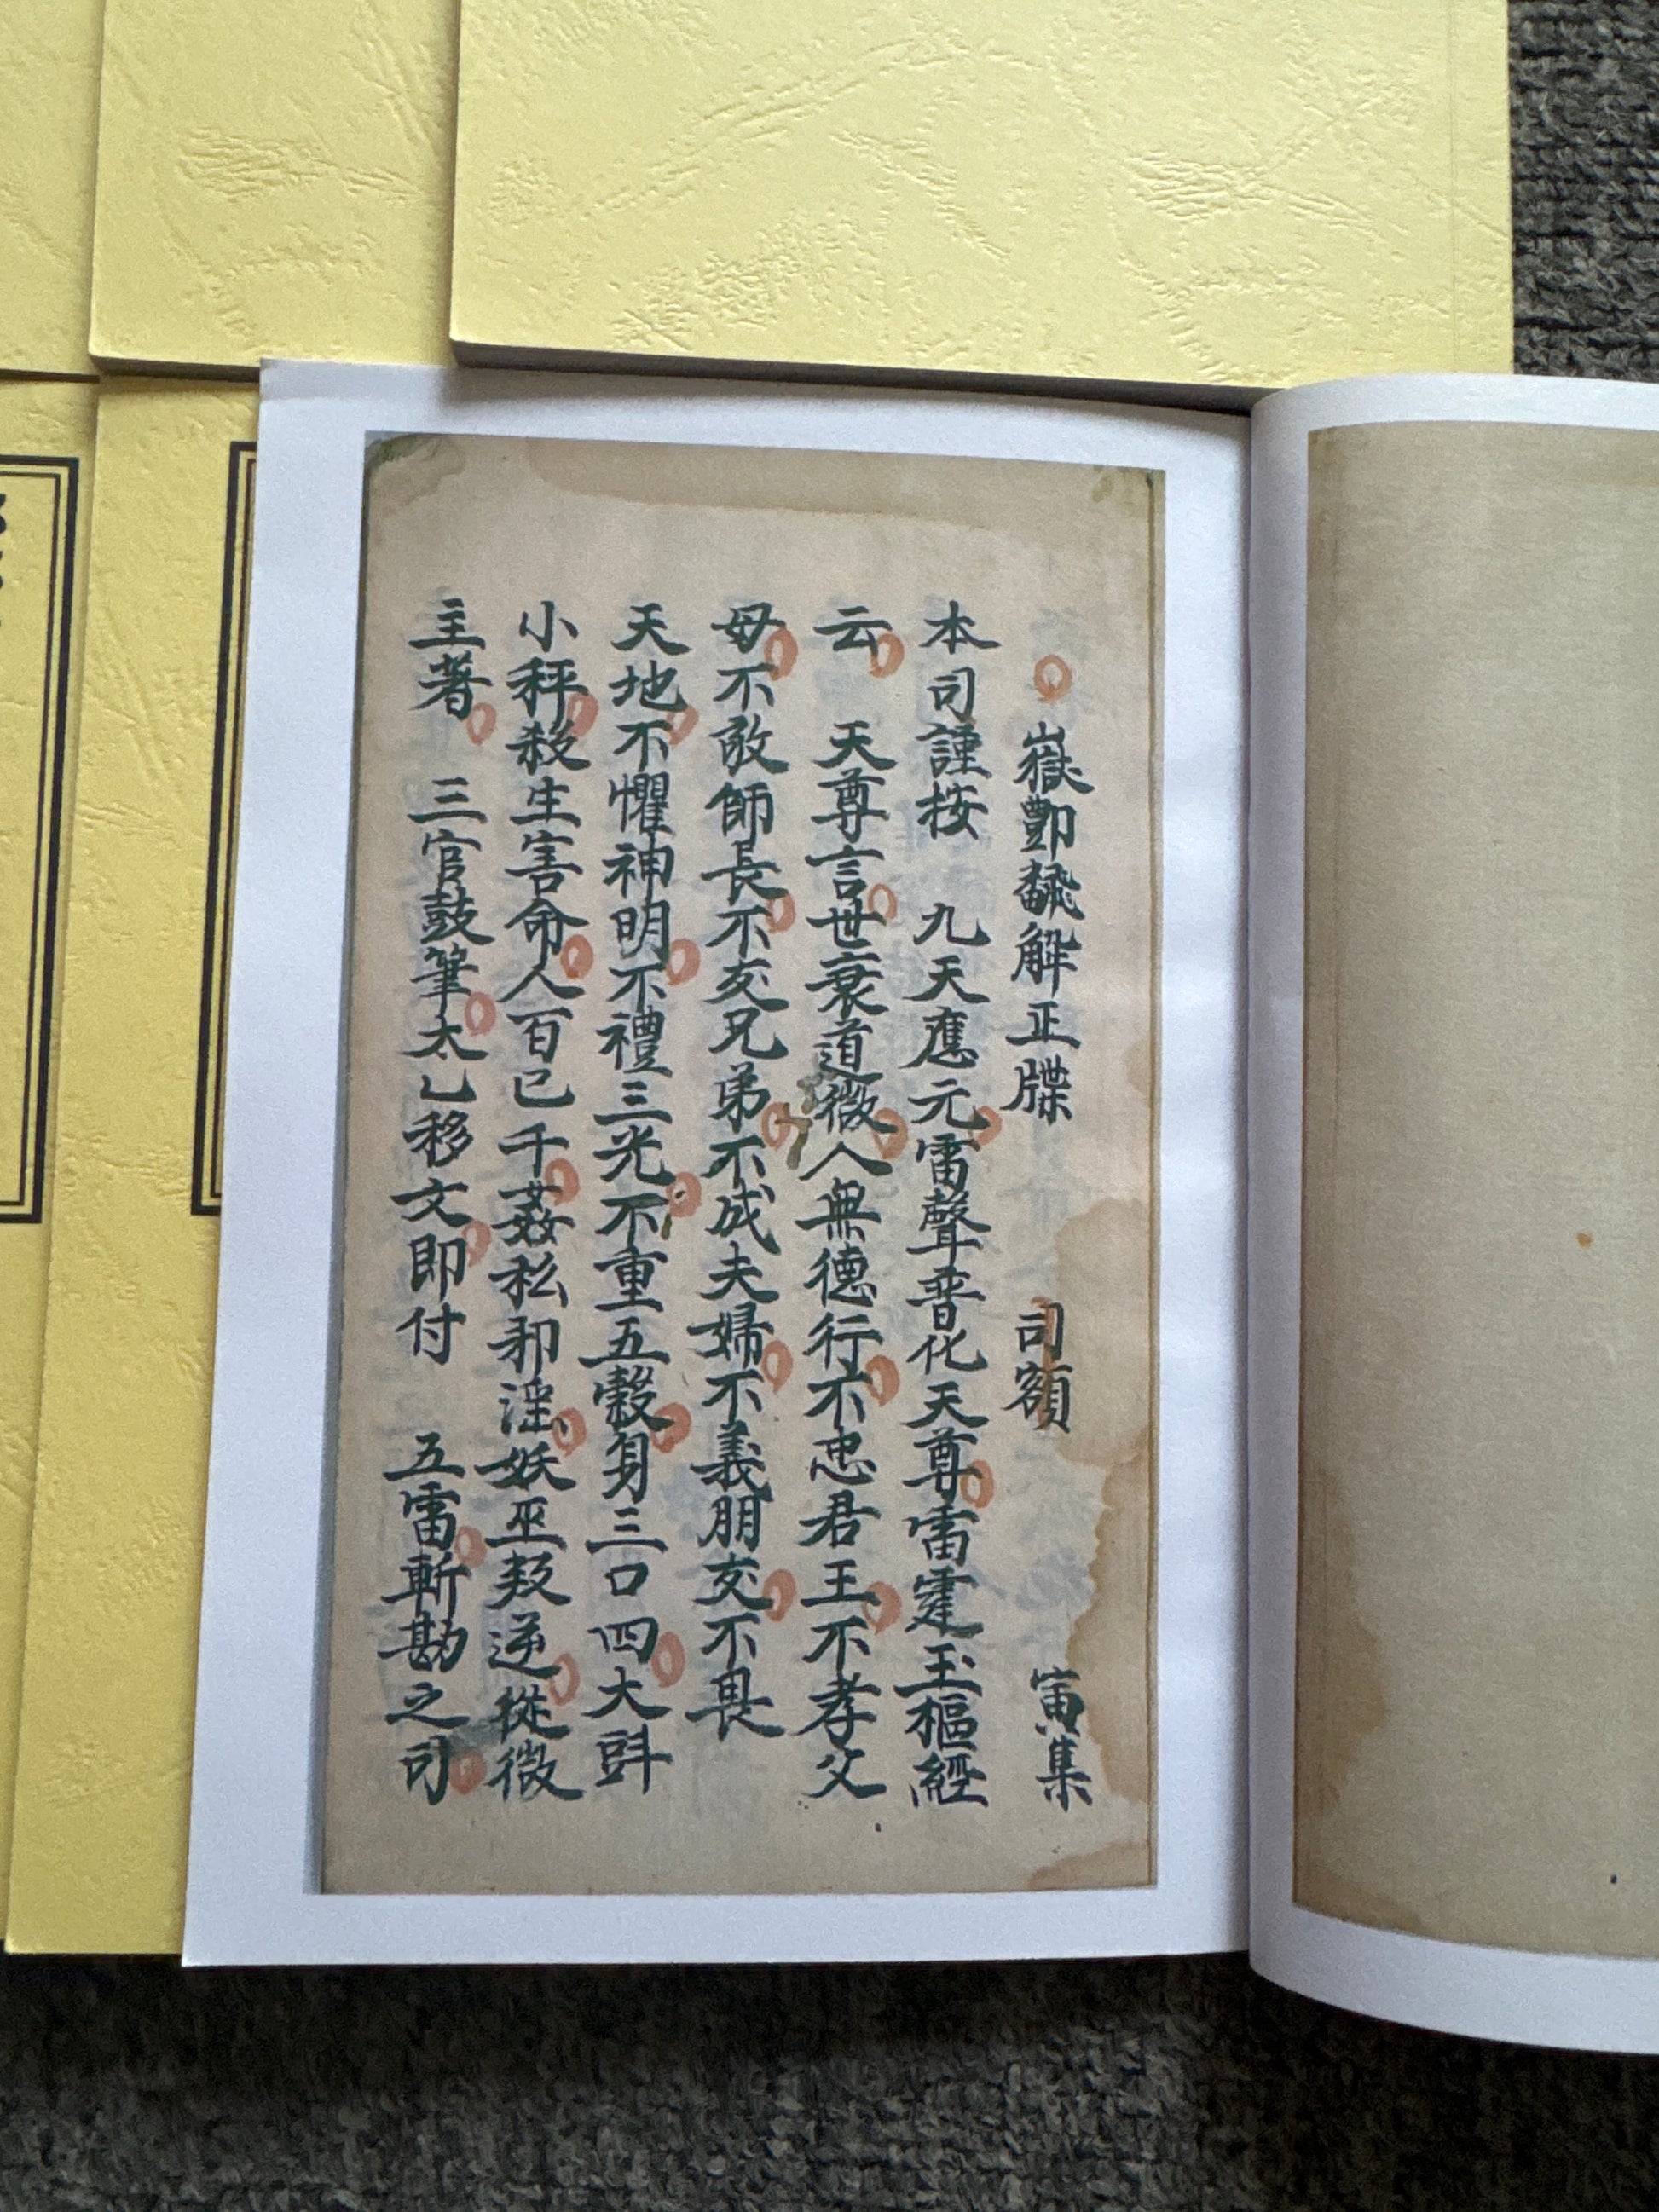 嶽酆飜解正牒 司額 寅集
本司謹按 九天應元雷聲普化天尊雷霆玉樞經
云 天尊言世衰道微人無德行不忠君王不孝父
母不敬師長不友兄弟不成夫婦不義朋交不畏
天地不懼神明不禮三光不重五穀身三口四大㪷
小秤殺生害命人百已千姦私邪淫妖巫叛逆從微
主著 三官鼓筆太乙移文即付 五雷斬勘之司